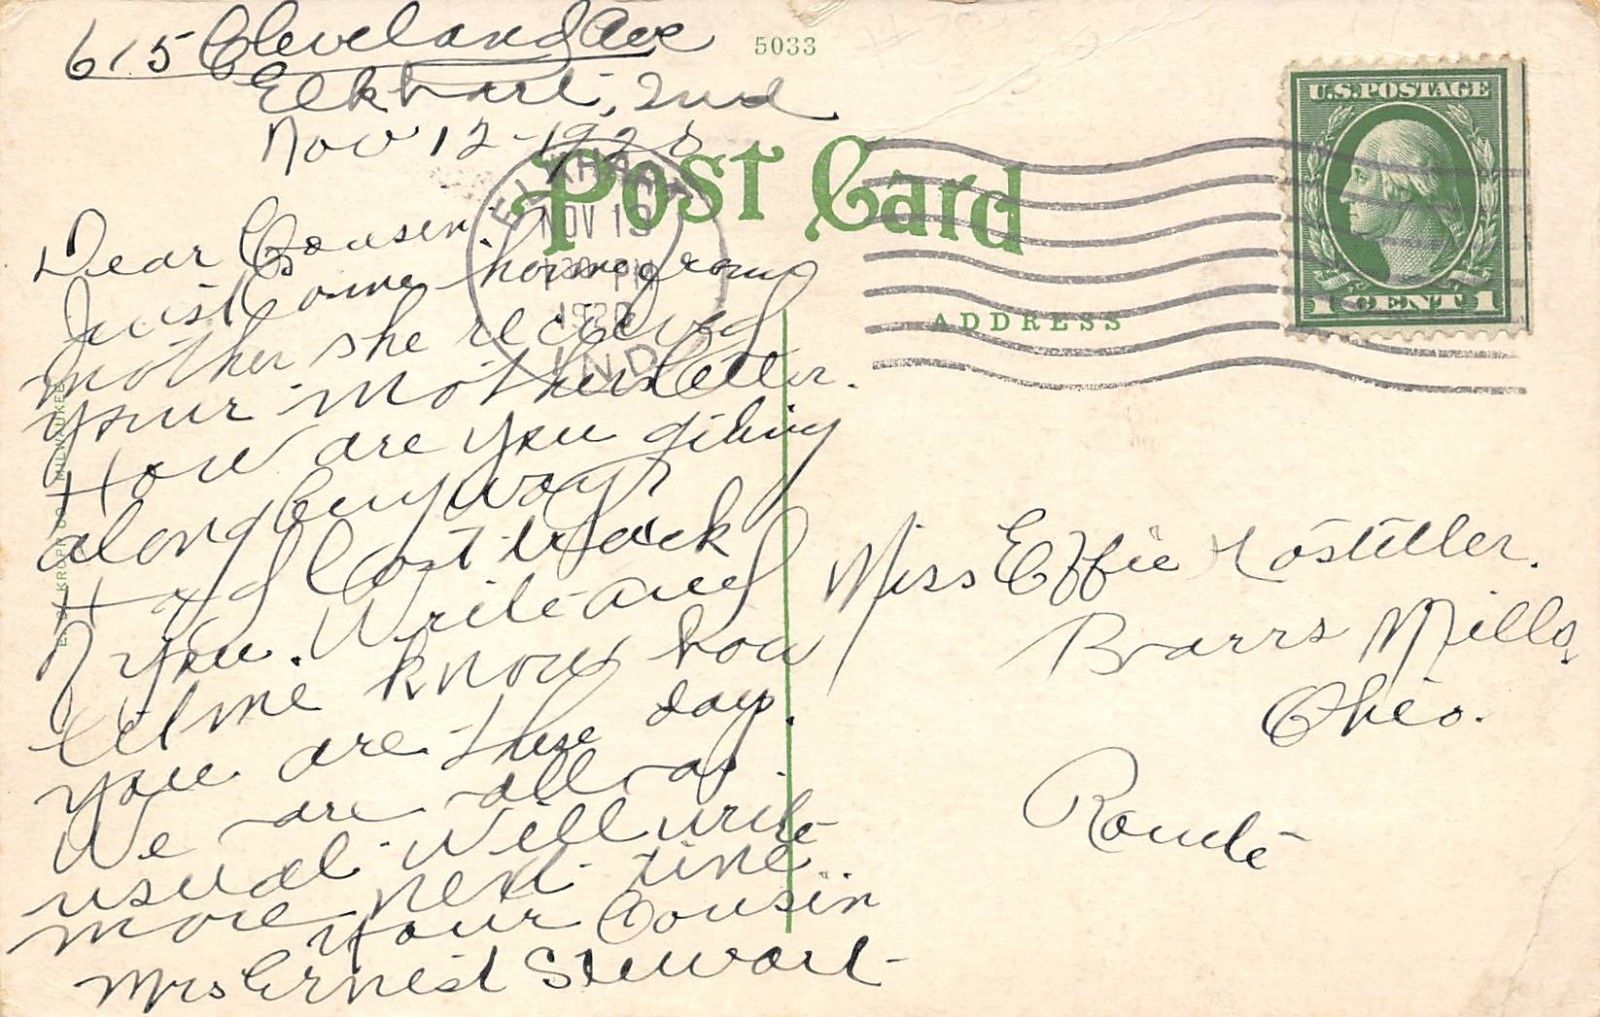 615 Cleveland Ave
Elkhart, Ind
Nov 12-1920
5033
Post Card
ADDRESS
U.S. POSTAGE
1 CENT 1
ELKHART
NOV 13
30 PM
1920
IND
Dear Cousin:
Just came home from
mother she received
your mothers letter.
How are you giting
along any way
Had lost track
of you. Write and
let me know how
you are these day.
We are all as
usual. Will write
more next time
your Cousin
Mrs Ernest Stewart-
Miss Effie Hostetler.
Barrs Mills,
Ohio.
Route
E. C. KROPP CO. MILWAUKEE